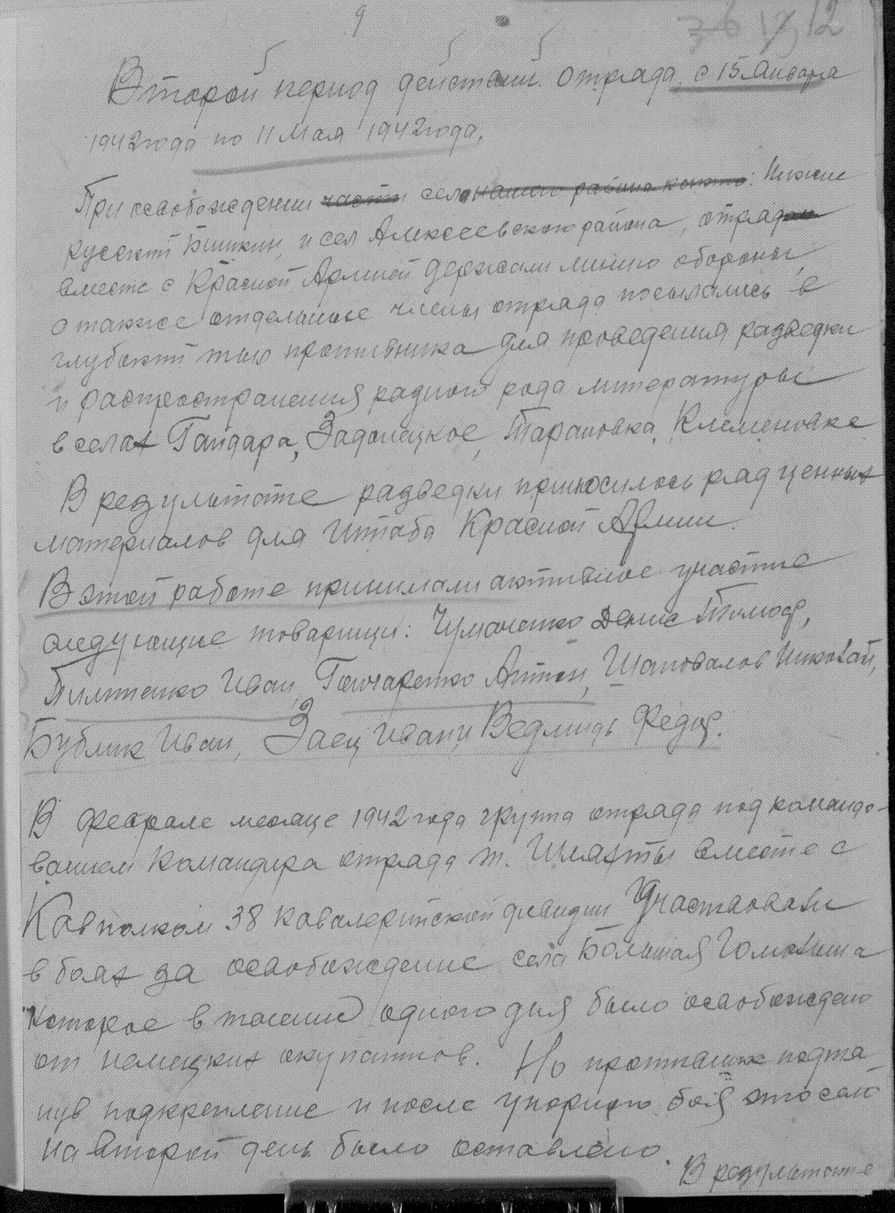 9
12
Второй период действий отряда с 15 Января
1942 года по 11 Мая 1942 года.
При освобождении части села нашего района : Нижне
русский Бишкин, и сел Алексеевского района, отряд
вместе с Красной Армией держали линию обороны,
а также отдельные члены отряда посылались в
глубокий тыл противника для проведения разведки
и распространения разного рода литературы
в селах Гайдара, Задонецкое, Тарановка, Клеменовке
В результате разведки приносилось ряд ценных
материалов для Штаба Красной Армии.
В этой работе принимали активное участие
следующие товарищи: Чумаченко Денис Тимоф,
Пилипенко Иван, Гончаренко Антон, Шаповалов Николай,
Бублик Иван, Заец Иван и Ведмидь Федор.
В феврале месяце 1942 года группа отряда под командо-
ванием командира отряда т. вместе с
Кавполком 38 кавалерийской дивизии Участвовали
в боях за освобождение села Большая Гомольша
которое в течение одного дня было освобождено
от немецких окупантов. Но противник подтя
нув подкрепление и после упорного боя это село
на второй день было оставлено.
В результате